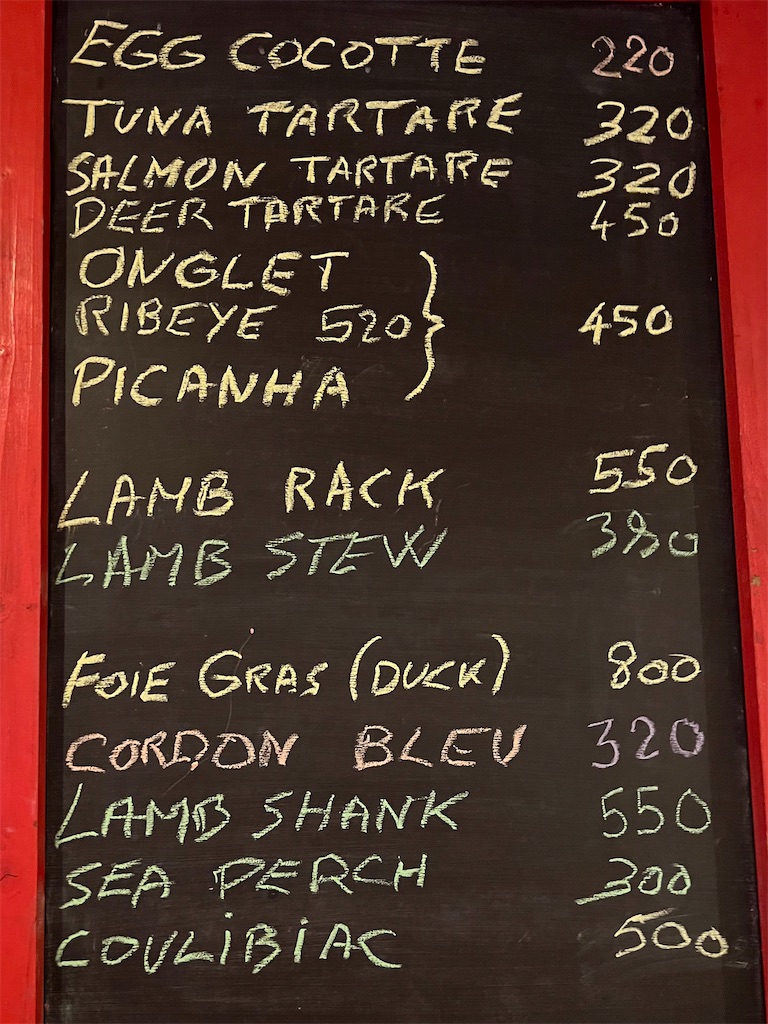 EGG COCOTTE 220
TUNA TARTARE 320
SALMON TARTARE 320
DEER TARTARE 450
ONGLET
RIBEYE 520 } 450
PICANHA
LAMB RACK 550
LAMB STEW 380
FOIE GRAS (DUCK) 800
CORDON BLEU 320
LAMB SHANK 550
SEA PERCH 300
COULIBIAC 500